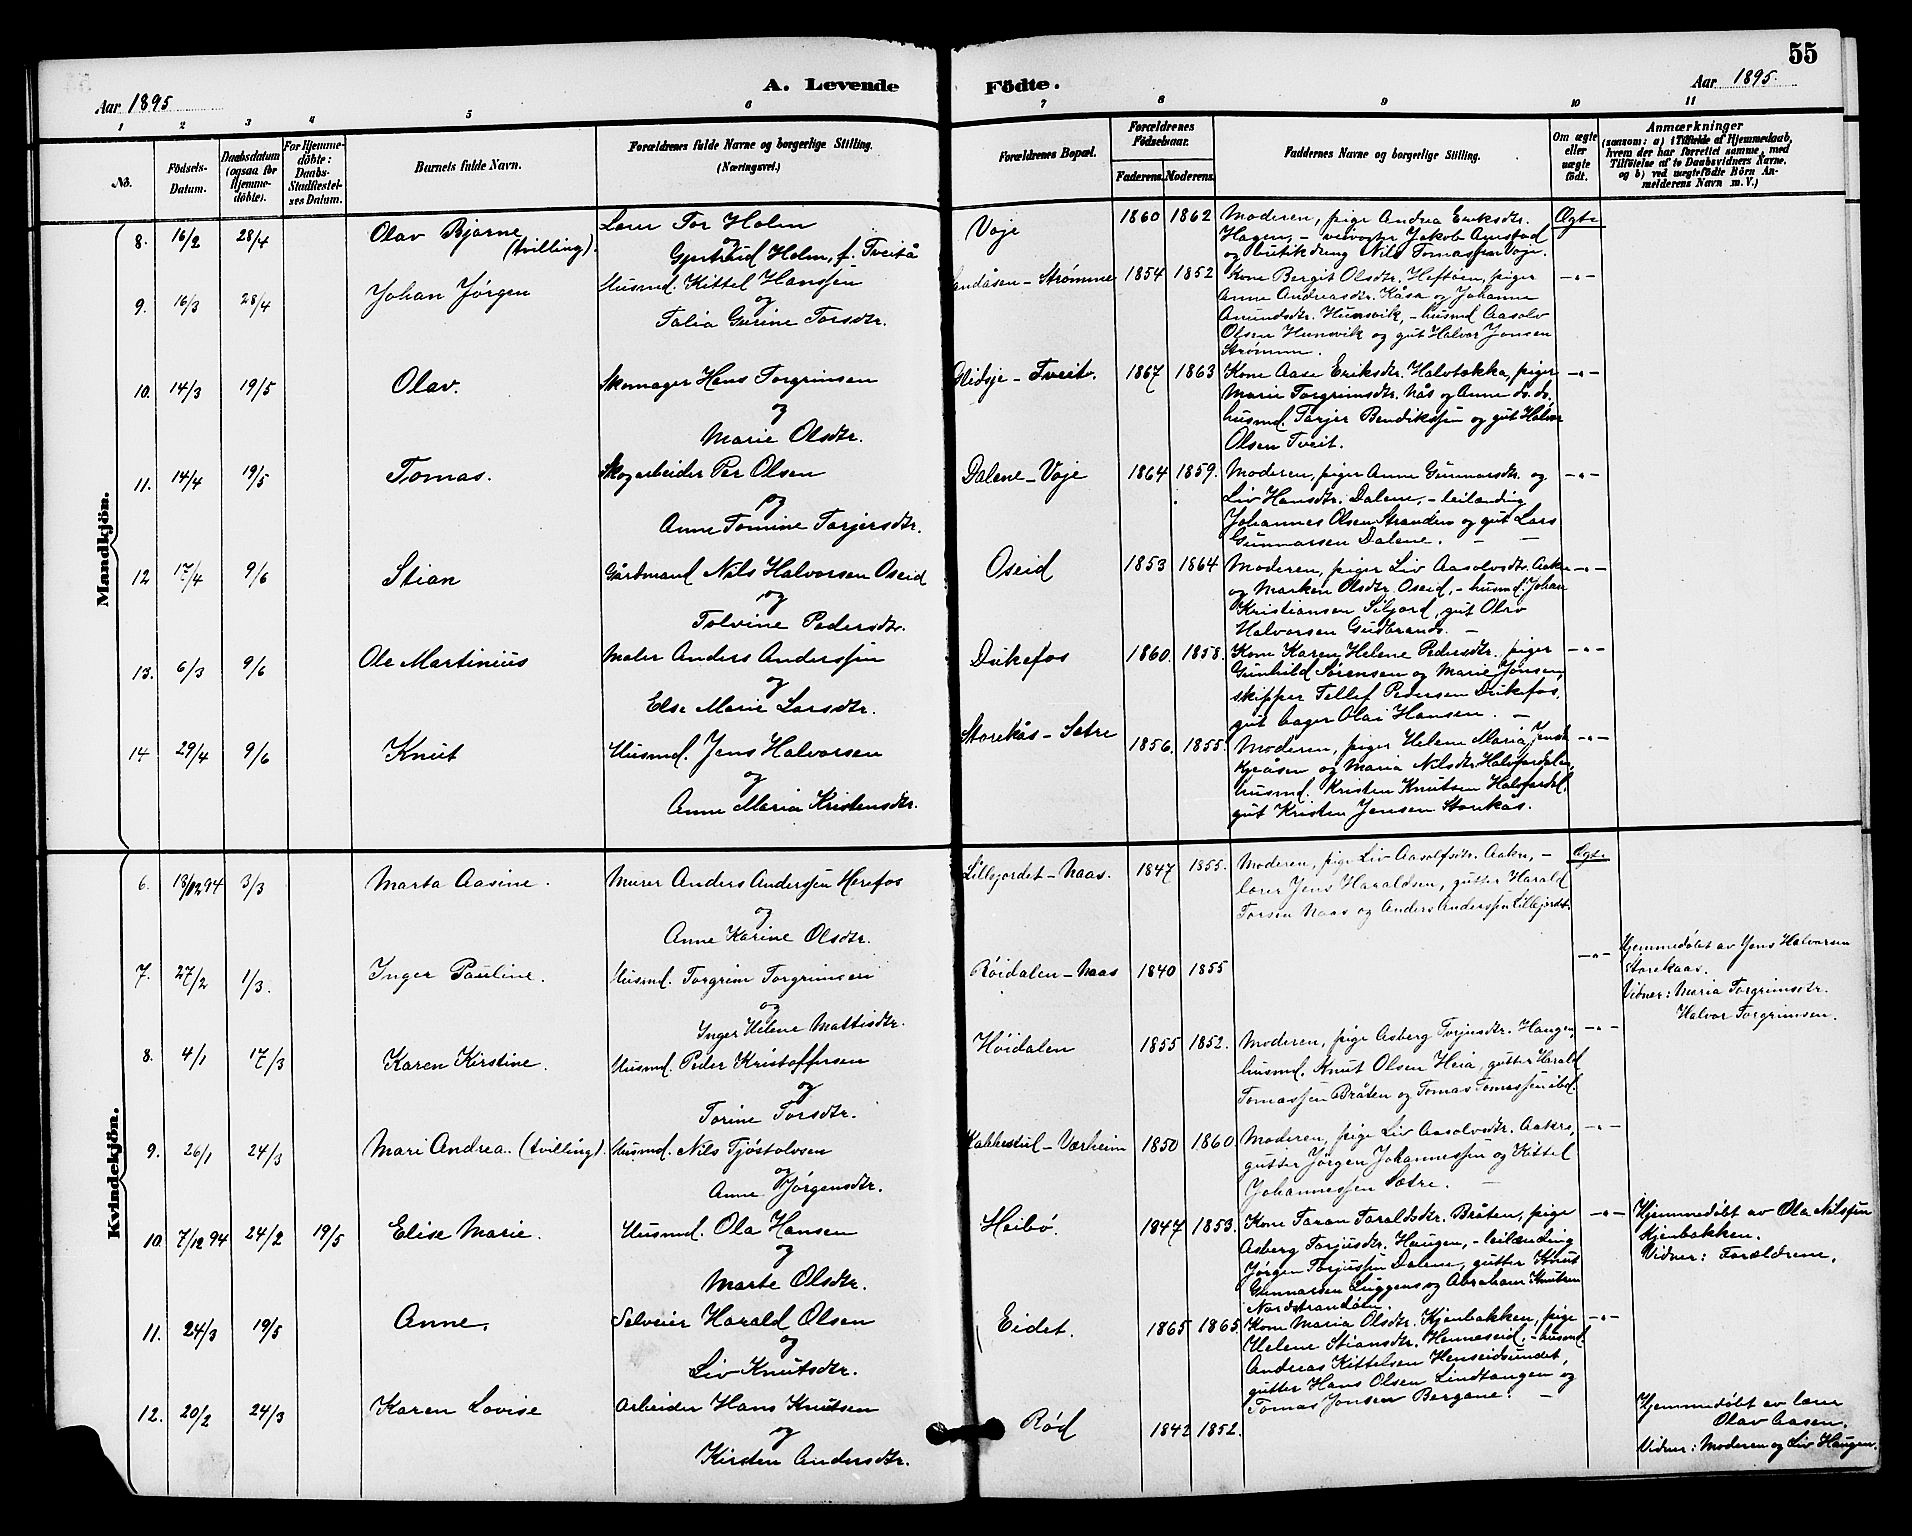 55
Aar 1895
A. Levende
Födte.
Aar 1895.
1 2 3 4 5 6 7 8 9 10 11
No.
Födsels-
Datum.
Daabsdatum
(ogsaa for
Hjemme-
döbte).
For Hjemme-
döbte:
Daabs-
Stadfæstel-
ses Datum.
Barnets fulde Navn.
Forældrenes fulde Navne og borgerlige Stilling.
(Næringsvei.)
Forældrenes Bopæl.
Forældrenes
Födselsaar.
Faderens. Moderens.
Faddernes Navne og borgerlige Stilling.
Om ægte
eller
uægte
födt.
Anmærkninger
(saasom: a) i Tilfælde af Hjemmedaab,
hvem der har forrettet samme, med
Tilföielse af to Daabsvidners Navne,
og b) ved uægtefödte Börn An-
melderens Navn m. V.)
Mandkjön.
8. 16/2 28/4 Olav Bjarne
(tvilling).
Lærer Tor Holm
og
Gjertrud Holm, f. Tveitå
Voje 1860 1862
Moderen, pige Andrea Eriksdtr.
Hagen, - veivogter Jakob Aamstad
og butikdreng Nils Tomassen Voje.
Ægte
9. 16/3 28/4 Johan Jørgen
Husmd. Kittel Hanssen
og
Talia Gurine Torsdtr.
Sandåsen - Strømme 1854 1852
Kone Bergit Olsdtr. Heftøen, piger
Anne Andreasdtr. Kåsa og Johanne
Amundsdtr. Hunsvik, - husmd Aasolv
Olsen Hunsvik og gut Halvor Jonsen
Strømme.
-"-
10. 14/3 19/5 Olav.
Skomager Hans Torgrimsen
og
Marie Olsdtr.
Glidsje - Tveit. 1867 1863
Kone Aase Eriksdtr. Halvtokka, piger
Marie Torgrimsdtr. Nås og Anne ds. ds.
husmd. Tarjer Bendikssen og gut Halvor
Olsen Tveit.
-"-
11. 14/4 19/5 Tomas.
Skogarbeider Per Olsen
og
Anne Tomine Tarjersdtr.
Dalene - Voje 1864 1859.
Moderen, piger Anne Gunnarsdtr. og
Liv Hansdtr. Dalene, - leilænding
Johannes Olsen Stranden og gut Lars
Gunnarsen Dalene. -
-"-
12 17/4 9/6 Stian
Gårdmand Nils Halvorsen Oseid
og
Tolvine Pedersdtr.
Oseid 1853 1864
Moderen, piger Liv Aasolvsdtr. Aakre
og Marken Olsdtr. Oseid, - husmd. Johan
Kristiansen Siljord, gut Olav
Halvorsen Gudbrands. -
-"-
13. 6/3 9/6 Ole Martinius
Maler Anders Anderssen
og
Else Marie Larsdtr.
Dukefos 1860. 1858.
Kone Karen Helene Pedersdtr. piger
Gunhild Sørensen og Marie Jonsen,
skipper Tellef Pedersen Dukefos,
gut Aager Olai Hansen. -
-"-
14 29/4 9/6 Knut
Husmd. Jens Halvorsen
og
Anne Maria Kristensdtr.
Storekås - Sætre 1856. 1855.
Moderen, piger Helene Maria Jensdt.
og Maria Nilsdtr. Halsfardalen,
husmd. Kristen Knutsen Halsfardal,
gut Kristen Jensen Storekås.
-"-
Kvindekjön.
6. 13/12 94 3/3 Marta Aasine.
Murer Anders Anderssen Herefos
og
Anne Karine Olsdtr.
Lillejordet - Naas. 1847 1855.
Moderen, pige Liv Aasolfsdtr. Aakre, -
lærer Jens Haraldsen, gutter Harald
Torsen Naas og Anders Anderssen Lillejordet.
Ægte
7. 27/2 1/3. Inger Pauline.
Husmd. Torgrim Torgrimsen
og
Inger Helene Mattisdtr.
Røidalen - Naas 1840 1855
-"-
Hjemmedøbt av Jens Halvorsen
Storekaas.
Vidner: Maria Torgrimsdtr.
Halvor Torgrimsen.
8. 4/1 17/3 Karen Kirstine.
Husmd. Peder Kristoffersen
og
Torine Torsdtr.
Høidalen 1855 1852.
Moderen, pige Asberg Torjusdtr. Haugen,
husmd. Knut Olsen Heia, gutter Harald
Tomassen Bråten og Tomas Tomassen ibd.
-"-
9. 26/1 24/3 Mari Andrea. (tvilling).
Husmd. Nils Tjøstolvsen
og
Anne Jørgensdtr.
Kabbestul - Værheim 1850 1860
Moderen, pige Liv Aasolvsdtr. Aakre,
gutter Jørgen Johannessen og Kittel
Johannessen Sætre. -
-"-
10. 7/12 94 24/2 19/5 Elise Marie.
Husmd. Ola Hansen
og
Marte Olsdtr.
Heibø. 1847 1853.
Kone Taran Taraldsdtr. Bråten, pige
Asberg Torjusdtr. Haugen, - leilænding
Jørgen Torjussen Dalene, gutter Knut
Gunnarsen Luggens og Abraham Knutsen
Nordstrandøen.
-"-
Hjemmedøbt av Ola Nilssen
Kjenbakken.
Vidner: Forældrene.
11. 24/3 19/5 Anne.
Selveier Harald Olsen
og
Liv Knutsdtr.
Eidet. 1865 1865.
Kone Maria Olsdtr. Kjenbakken, pige
Helene Stiansdtr. Henneseid, - husmd.
Andreas Kittelsen Henseidsundet,
gutter Hans Olsen Lindtangen og
Tomas Jonsen Bergane. -
-"-
12. 20/2 24/3 Karen Lovise
Arbeider Hans Knutsen
og
Kirsten Andersdtr.
Rød 1842 1852.
Hjemmedøbt av lærer
Olav Aasen.
Vidner: Moderen og Liv Haugen.